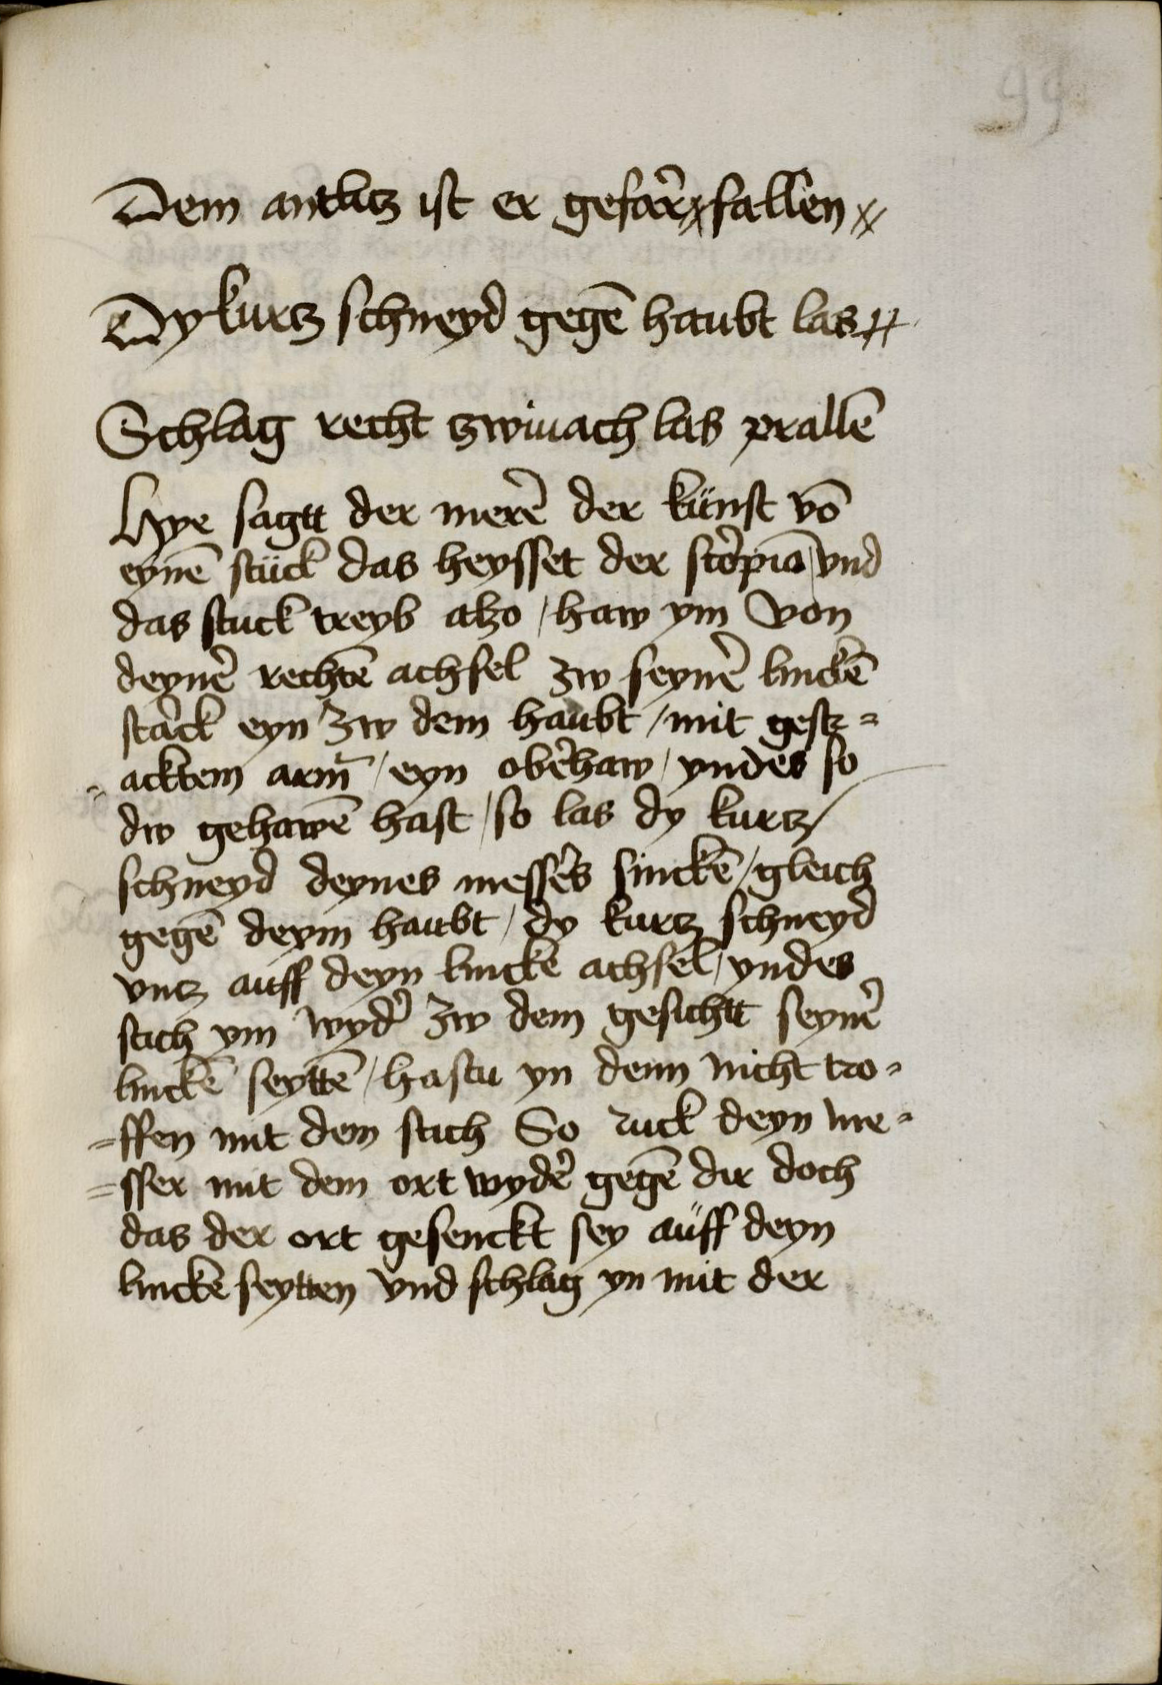 99
Dem antlitz ist er gefar̄ fallen
Dy kurtz schneyd gegē haubt las
Schlag recht zwiuach las prallē
Hye sagtt der merē der künst vō
eynē stück das heysset der scorpiō / vnd
das stuck treyb also / haw ym von
deynē rechtē achsel zw seynē linckē
starck eyn zw dem haubt / mit gestr=
=acktem arm̄ / eyn oberhaw / yndes so
dw gehawē hast / so las dy kurtz /
schneyd deynes messers sinckē / gleich
gegē deym haubt / dy kurtz schneyd
vntz auff deyn lincke achsel / yndes
stich ym wyder zw dem gesichtt seynē
linckē seyttē / hastu yn denn nicht tro=
=ffen mit dem stich So ruck deyn me=
=sser mit dem ort wyder gegē dir doch
das der ort gesenckt sey aüff deyn
lincke seytten vnd schlag yn mit der